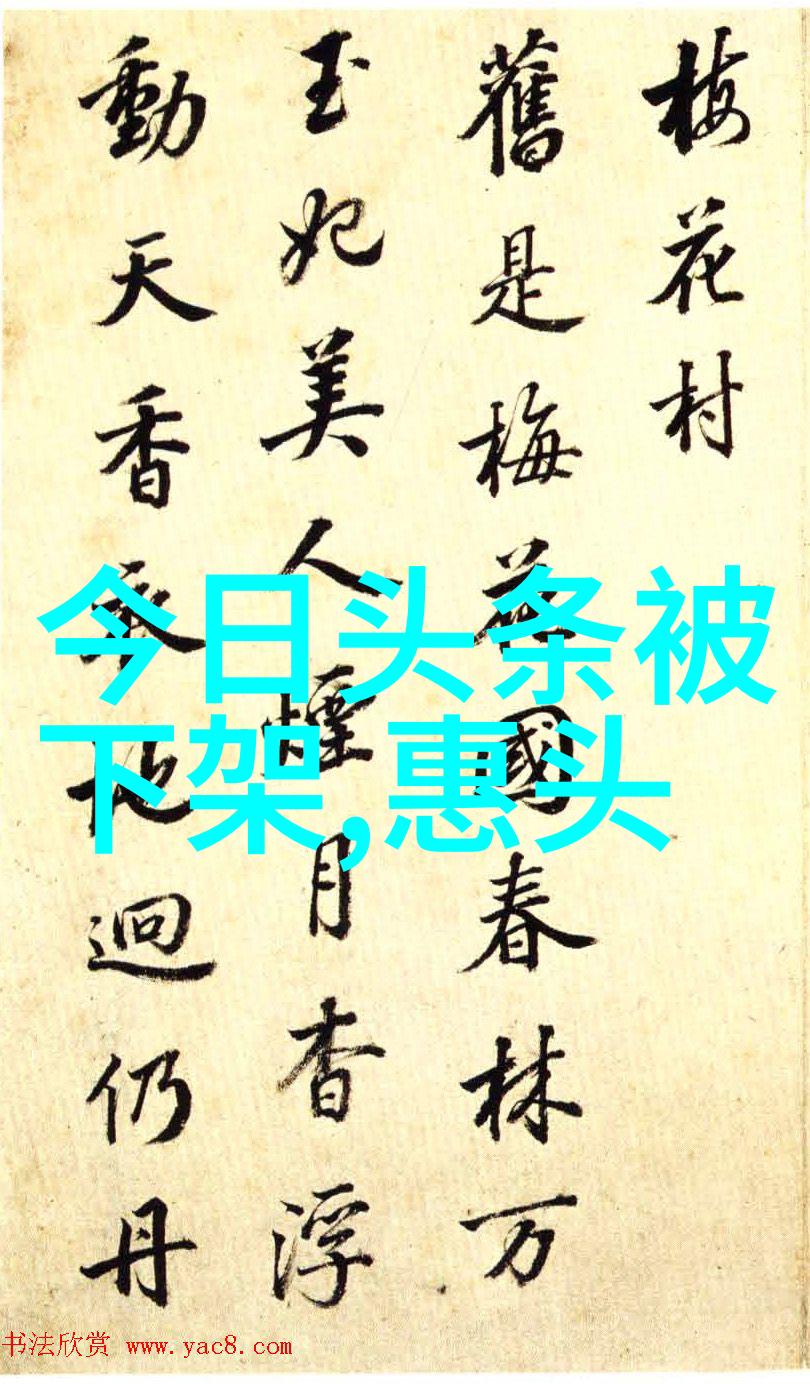 梅花村
舊是梅花國春林万
玉妃美人煙月杳浮
動天香迴仍丹
今日头条被
下架,惠头
书法欣赏 www.yac8.com